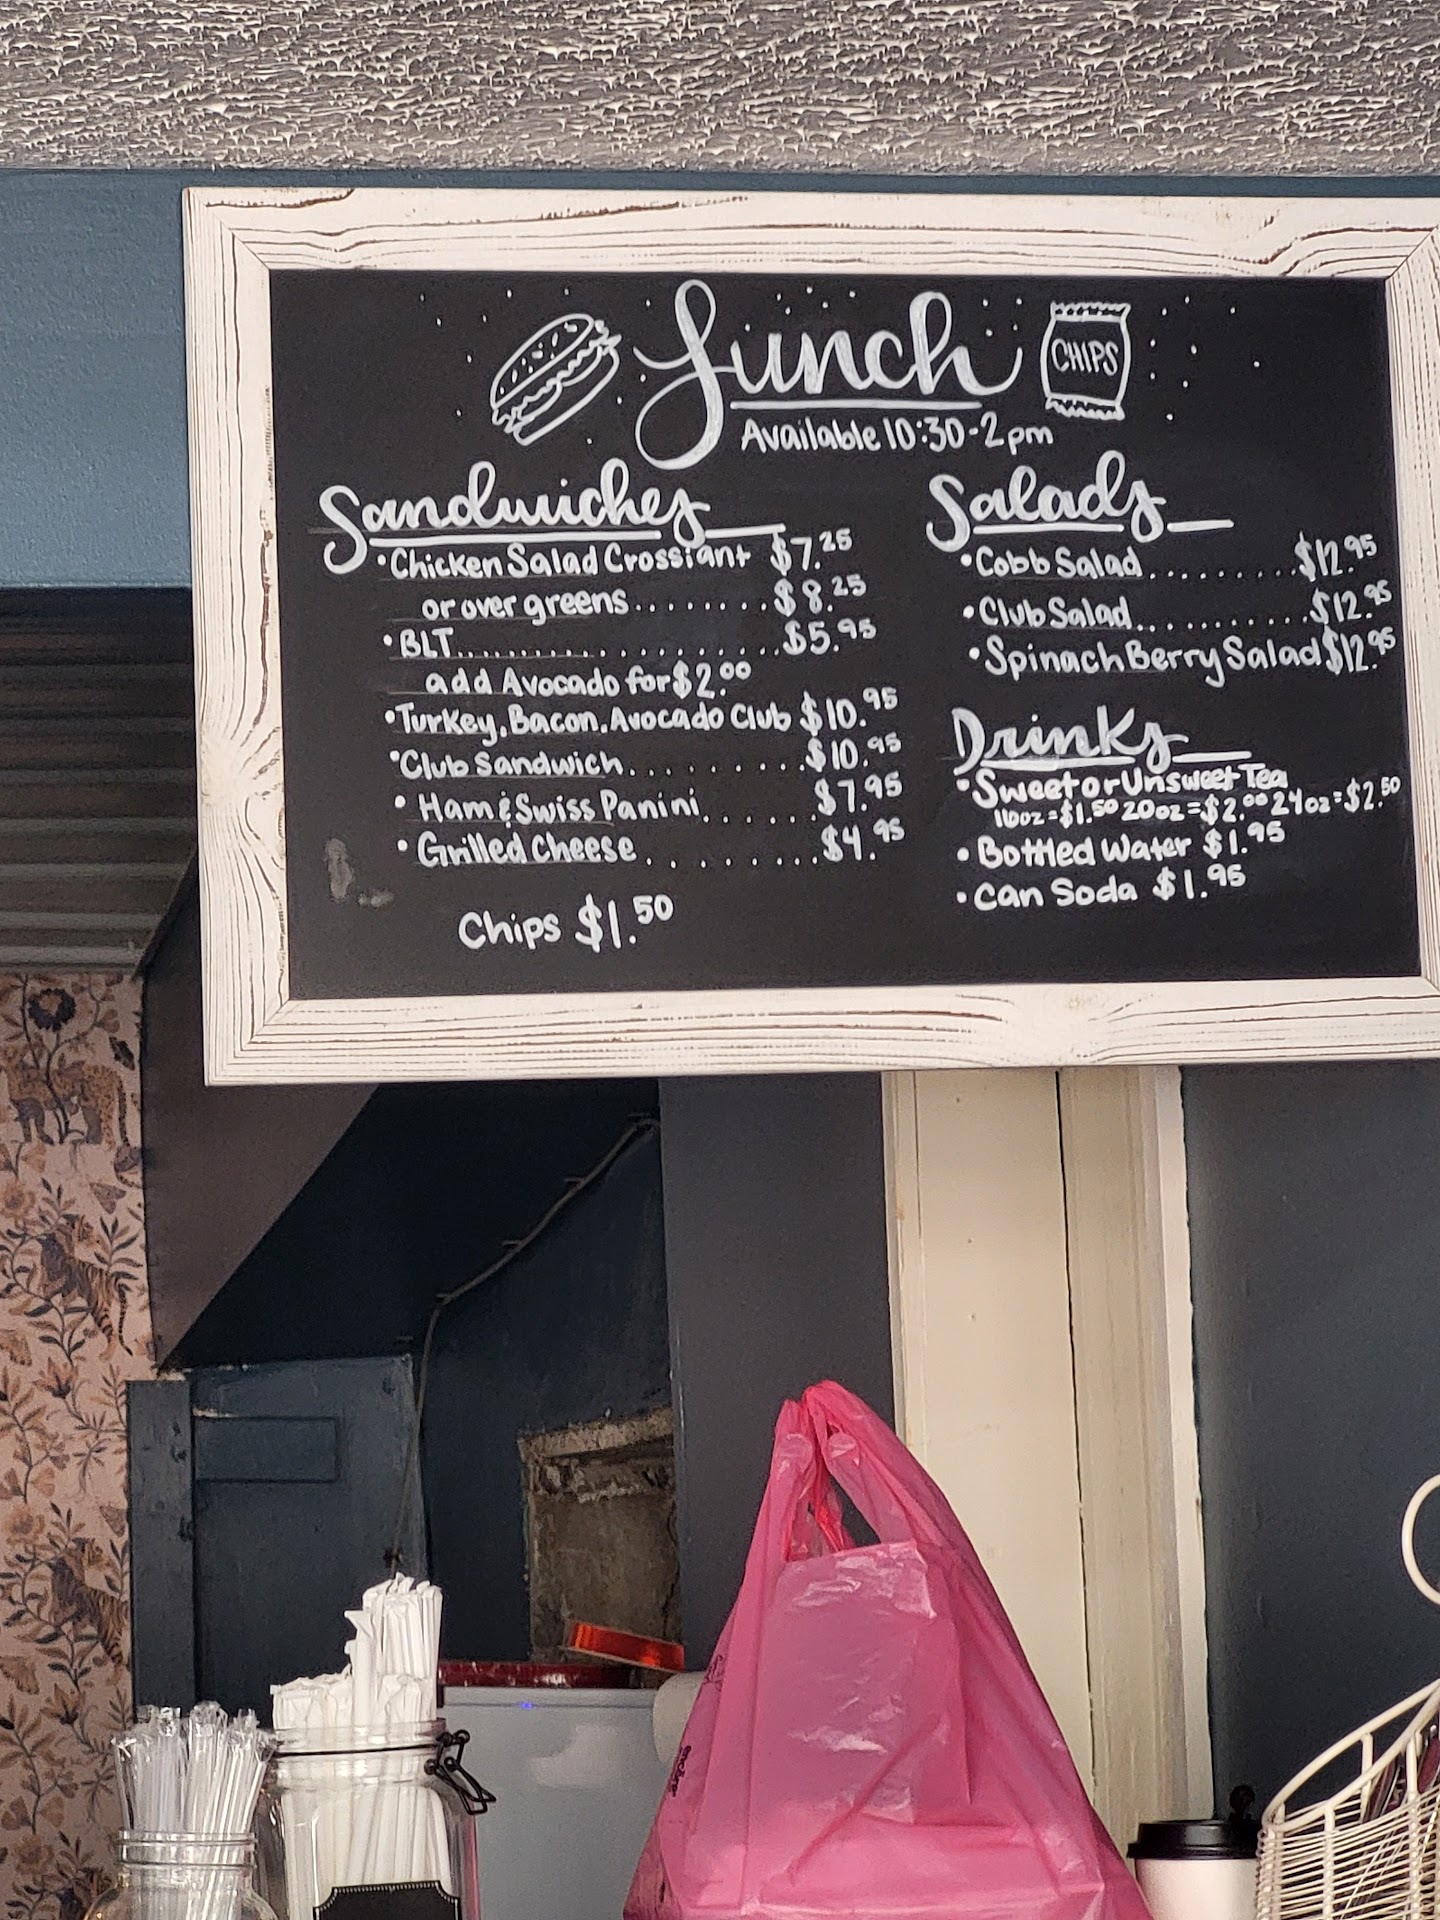 Lunch
CHIPS
Available 10:30-2pm
Sandwiches
•Chicken Salad Crossiant $7.25
or over greens........$8.25
•BLT....................$5.95
add Avocado for $2.00
•Turkey, Bacon, Avocado Club $10.95
•Club Sandwich.........$10.95
•Ham & Swiss Panini......$7.95
•Grilled Cheese.........$4.95
Chips $1.50
Salads
•Cobb Salad.........$12.95
•Club Salad...........$12.95
•Spinach Berry Salad $12.95
Drinks
•Sweet or Unsweet Tea
16oz=$1.50 20oz=$2.00 24oz=$2.50
•Bottled Water $1.95
•Can Soda $1.95